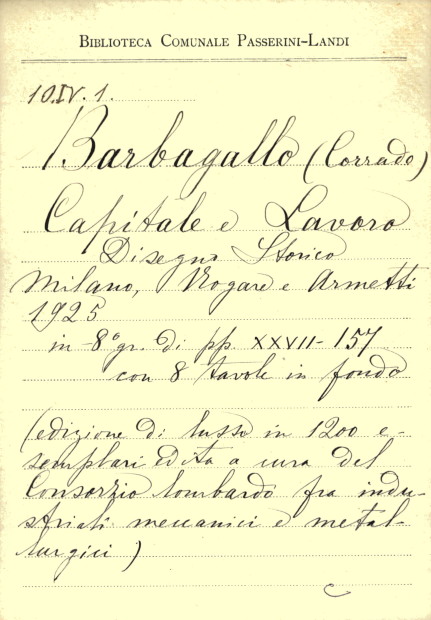 BIBLIOTECA COMUNALE PASSERINI-LANDI
10.IV.1.
Barbagallo (Corrado)
Capitale e Lavoro
Disegno Storico
Milano, Rogare e Armetti
1925
in-8° gr. di pp. XXVII-157
con 8 tavole in fondo
(edizione di lusso in 1200 e-
semplari edita a cura del
Consorzio lombardo fra indu-
striali meccanici e metal-
lurgici)